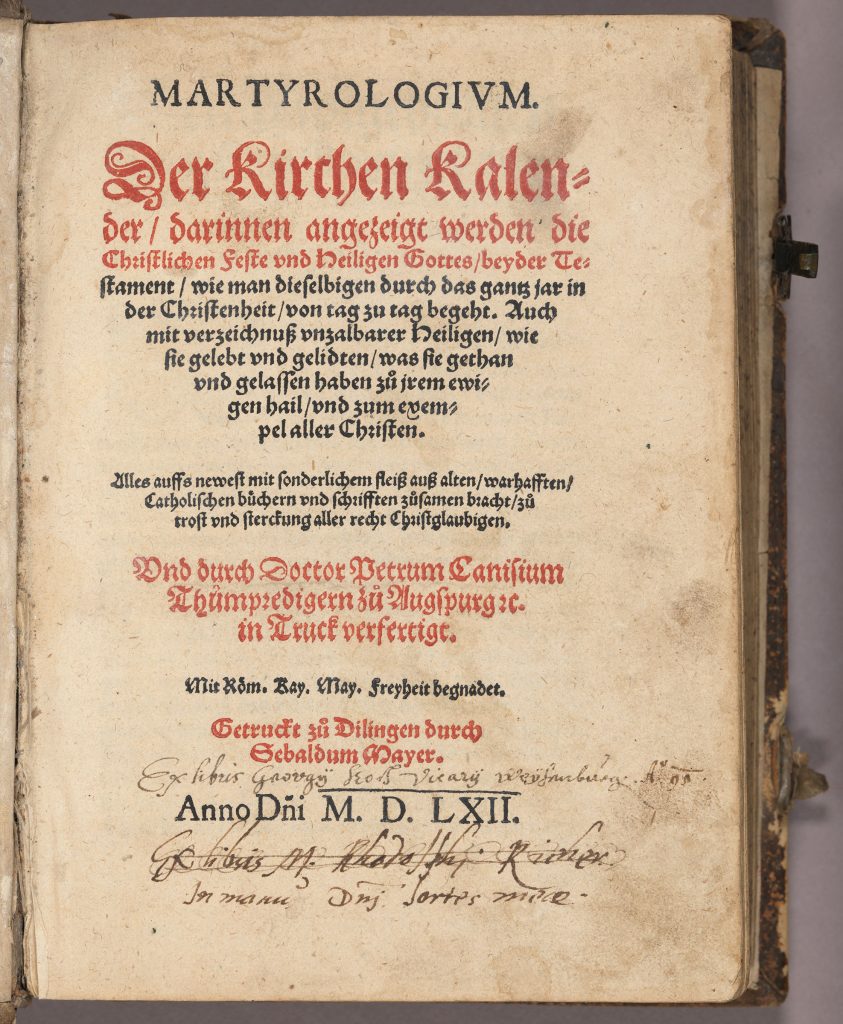 MARTYROLOGIVM.
Der Kirchen Kalen⸗
der / darinnen angezeigt werden die
Christlichen Feste vnd Heiligen Gottes / beyder Te⸗
stament / wie man dieselbigen durch das gantz jar in
der Christenheit / von tag zu tag begeht. Auch
mit verzeichnuß vnzalbarer Heiligen / wie
sie gelebt vnd gelidten / was sie gethan
vnd gelassen haben zů jrem ewi⸗
gen hail / vnd zum exem⸗
pel aller Christen.
Alles auffs newest mit sonderlichem fleiß auß alten / warhafften /
Catholischen büchern vnd schrifften zůsamen bracht / zů
trost vnd sterckung aller recht Christglaubigen.
Vnd durch Doctor Petrum Canisium
Thůmpredigern zů Augspurg ꝛc.
in Truck verfertigt.
Mit Röm. Kay. May. Freyheit begnadet.
Getruckt zů Dilingen durch
Sebaldum Mayer.
Ex libris Georgÿ Vicarÿ
Anno Dñi M. D. LXII.
Ex libris M. Richer
In manu Dnj sortes meæ.